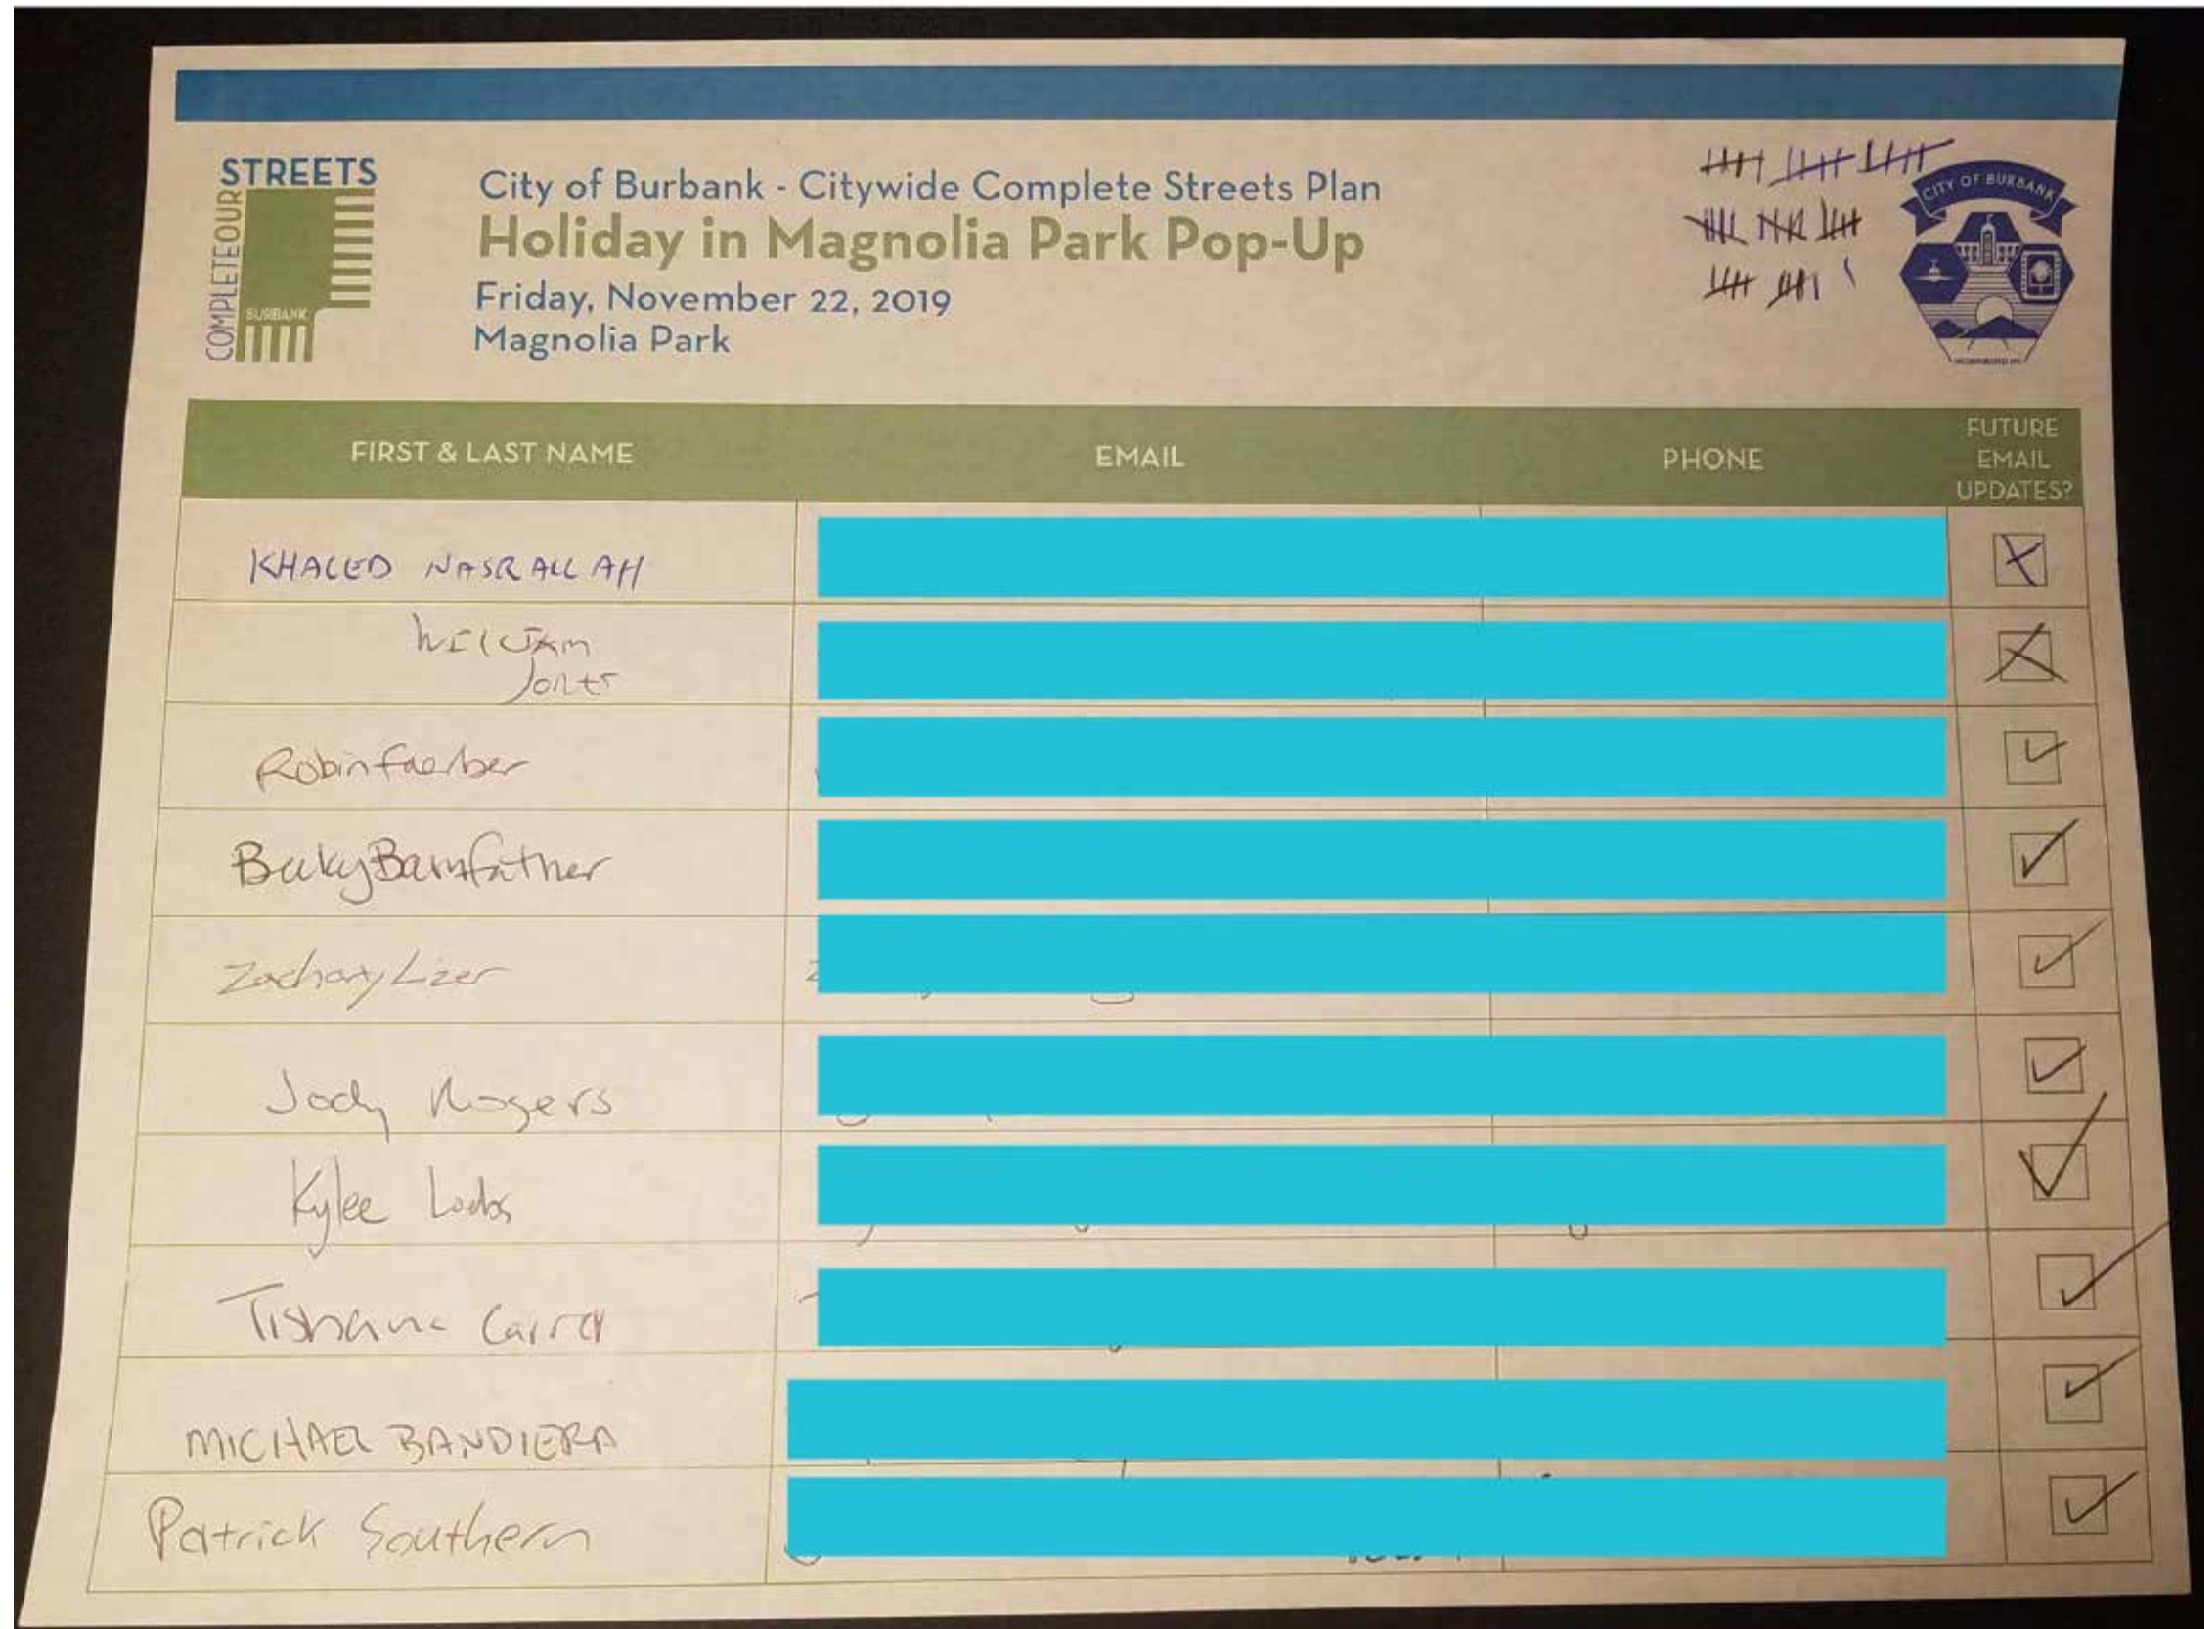 STREETS
COMPLETE OUR
BURBANK
City of Burbank - Citywide Complete Streets Plan
Holiday in Magnolia Park Pop-Up
Friday, November 22, 2019
Magnolia Park
CITY OF BURBANK
FIRST & LAST NAME EMAIL PHONE FUTURE EMAIL UPDATES?
KHALED NASRALLAH
WILLIAM
Jones
Robin Faerber
Becky Barnfather
Zachary Lizer
Jody Rogers
Kylee Loobs
Tishana
MICHAEL BANDIERA
Patrick Southern